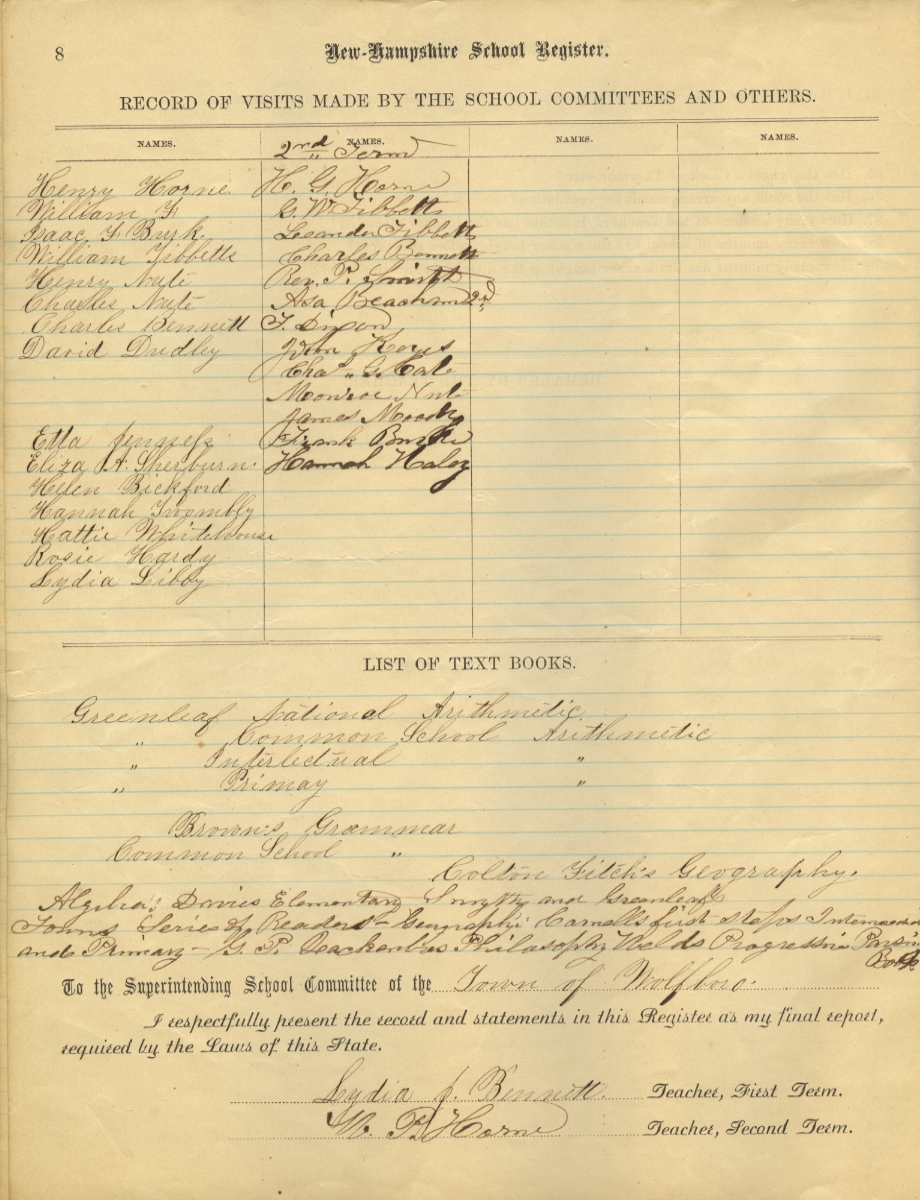 8
New-Hampshire School Register.
RECORD OF VISITS MADE BY THE SCHOOL COMMITTEES AND OTHERS.
NAMES. NAMES. NAMES. NAMES.
2nd " Term
Henry Horne
William F
Isaac F Burk
William Tibbetts
Henry Nute
Charles Nute
Charles Bennett
David Dudley
Etta Jenness
Eliza A. Sherburn.
Helen Bickford
Hannah Twombly
Hattie Whitehouse
Rosie Hardy
Lydia Libby
H. G. Horne
G. W. Tibbetts
Leander Tibbetts
Charles Bennett
Rev. P. Smith
Asa Beacham 2nd
T. Dixon
John
Chas " G.
Monroe Nute
James Moody
Frank Burke
Hannah Haley
LIST OF TEXT BOOKS.
Greenleaf National Arithmetic.
" Common School Arithmetic
" Intelectual "
" Primay "
Brown's Grammar
Common School "
Colton Fitch's Geography.
Algebra: Davies Elementary Smyths and Greenleafs
Towns Series of Readers - Geography: Cornells first steps
and Primary - G. P. Quackenbos Philosophy Welds Progressive
Book
To the Superintending School Committee of the Town of Wolfboro.
I respectfully present the record and statements in this Register as my final report,
required by the Laws of this State.
Lydia J. Bennett. Teacher, First Term.
P. Horne Teacher, Second Term.